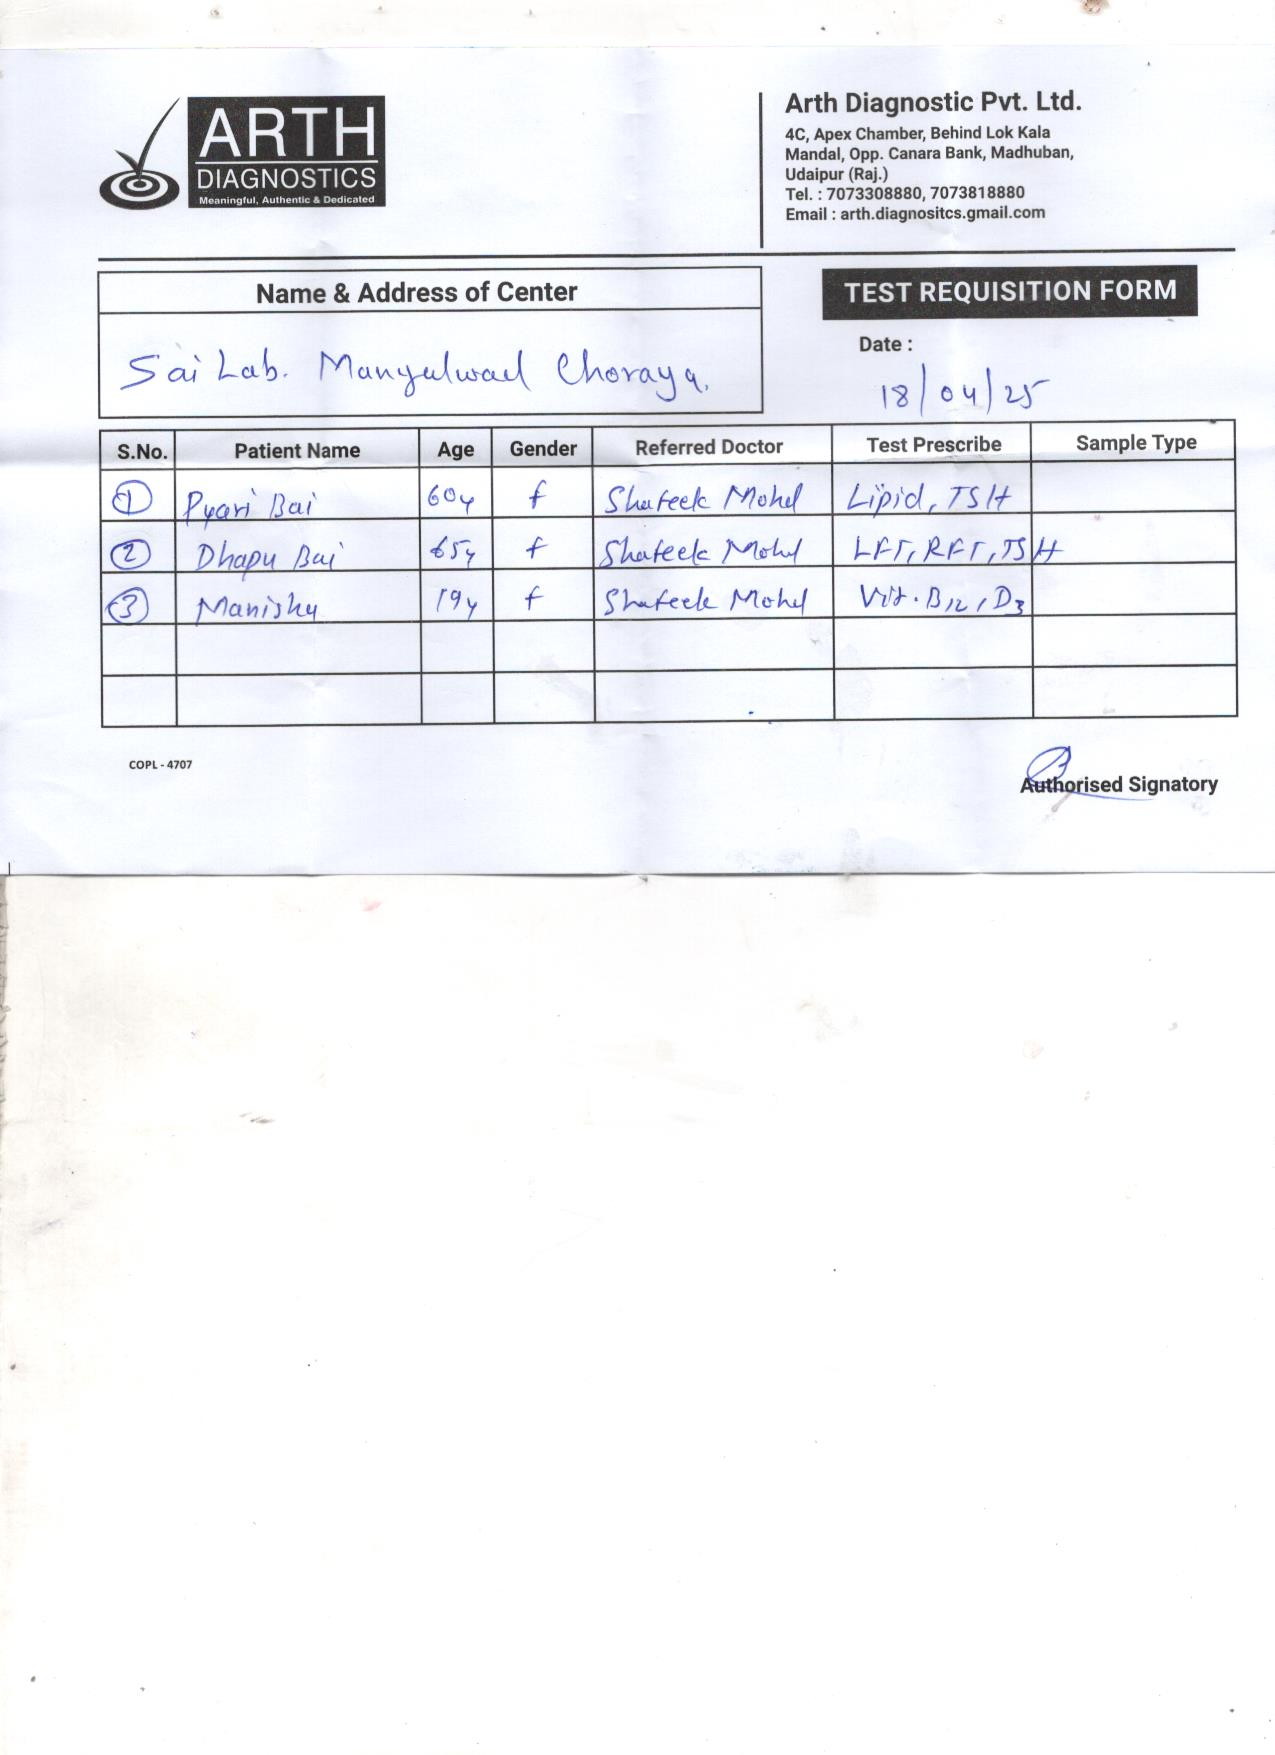 ARTH
DIAGNOSTICS
Meaningful, Authentic & Dedicated
Arth Diagnostic Pvt. Ltd.
4C, Apex Chamber, Behind Lok Kala
Mandal, Opp. Canara Bank, Madhuban,
Udaipur (Raj.)
Tel. : 7073308880, 7073818880
Email : arth.diagnositcs.gmail.com
Name & Address of Center
TEST REQUISITION FORM
Sai Lab. Mangalwad Choraya.
Date :
18/04/25
S.No. Patient Name Age Gender Referred Doctor Test Prescribe Sample Type
1 Pyari Bai 60y f Shafeek Mohd Lipid, TSH
2 Dhapu Bai 65y f Shafeek Mohd LFT, RFT, TSH
3 Manisha 19y f Shafeek Mohd Vit. B12, D3
COPL - 4707
Authorised Signatory